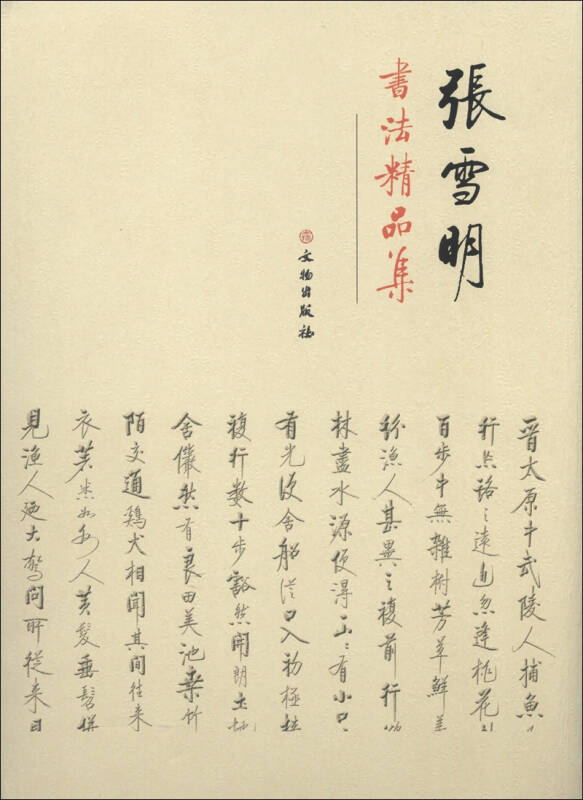 張雪明
书法精品集
文物出版社
晉太原中武陵人捕魚
行忘路之遠近忽逢桃花
百步中無雜樹芳草鮮美
紛漁人甚異之複前行欲
林盡水源便得一山〻有小口
有光便舍船從口入初極狹
複行数十步豁然開朗土地
舍儼然有良田美池桒竹
陌交通鷄犬相聞其間往来
衣著悉如外人黄髮垂髫併
見漁人廼大驚問所從来